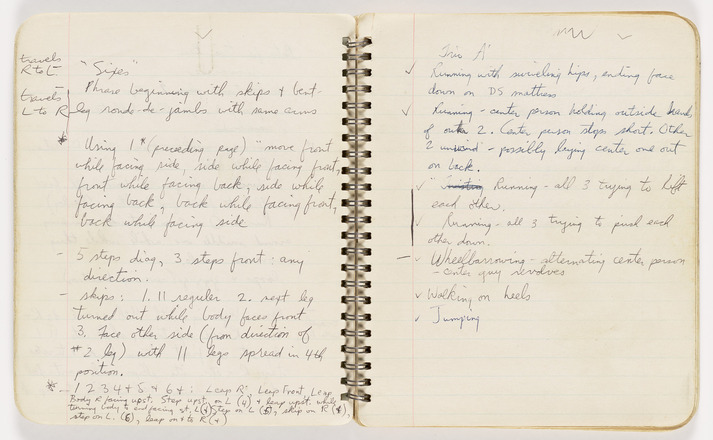 travels
R to L
"Sixes"
Phrase beginning with skips & bent-
travels
L to R
leg ronde-de-jambs with same arms
* Using 1* (preceding page) "move front
while facing side, side while facing front,
front while facing back, side while
facing back, back while facing front,
back while facing side
- 5 steps diag, 3 steps front: any
direction.
- skips: 1. 11 regular 2. rept leg
turned out while body faces front
3. Face other side (from direction of
#2 leg) with 11 legs spread in 4th
position.
*- 1 2 3 4 & 5 & 6 &: Leap R. Leap Front, Leap
Body R facing upst. Step upst. on L (4) & leap upst. while
turning body to end facing st. L (&) Step on L (5), skip on R (&),
step on L. (6), leap onto R (&)
Trio A'
✓ Running with swiveling hips, ending face
down on DS mattress
✓ Running - center person holding outside hands
of outer 2. Center person stops short. Other
2 unwind - possibly laying center one out
on back.
✓ Running - all 3 trying to lift
each other.
✓ Running - all 3 trying to push each
other down.
- Wheelbarrowing - alternating center person
- center guy revolves
✓ Walking on heels
✓ Jumping